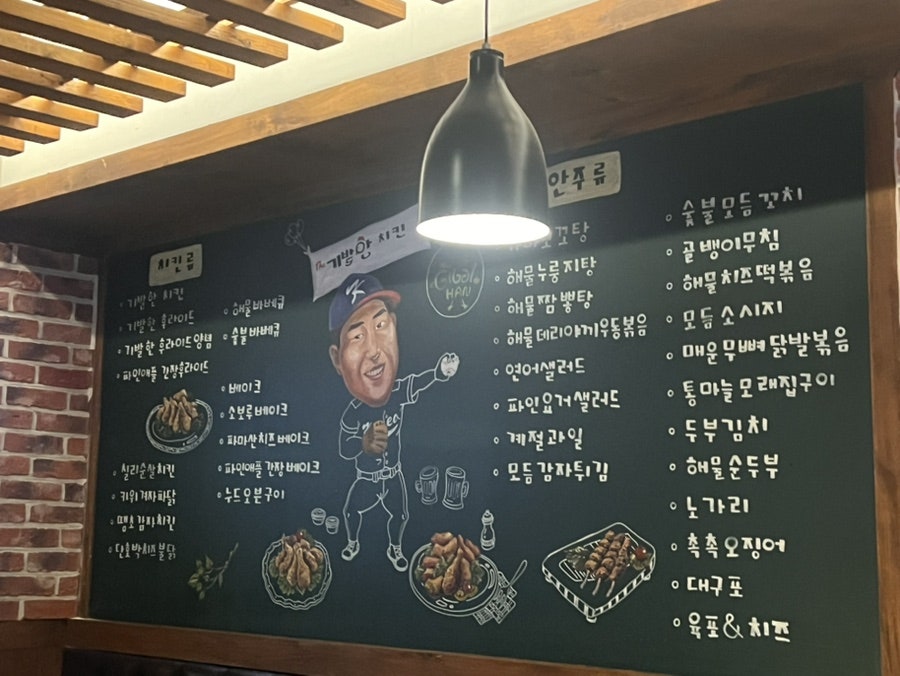 치킨류
기발한 치킨
기발한 후라이드
기발한 후라이드양념
파인애플 간장후라이드
칠리순살치킨
키위겨자파닭
땡초감자치킨
단호박치즈불닭
해물바베큐
숯불바베큐
베이크
소보루베이크
파마산치즈베이크
파인애플간장베이크
누드오븐구이
The 기발한 치킨
K
Gibal
HAN
안주류
꼬탕
해물누룽지탕
해물짬뽕탕
해물데리야끼우동볶음
연어샐러드
파인요거샐러드
계절과일
모듬감자튀김
숯불모듬꼬치
골뱅이무침
해물치즈떡볶음
모듬소시지
매운무뼈닭발볶음
통마늘모래집구이
두부김치
해물순두부
노가리
촉촉오징어
대구포
육포&치즈